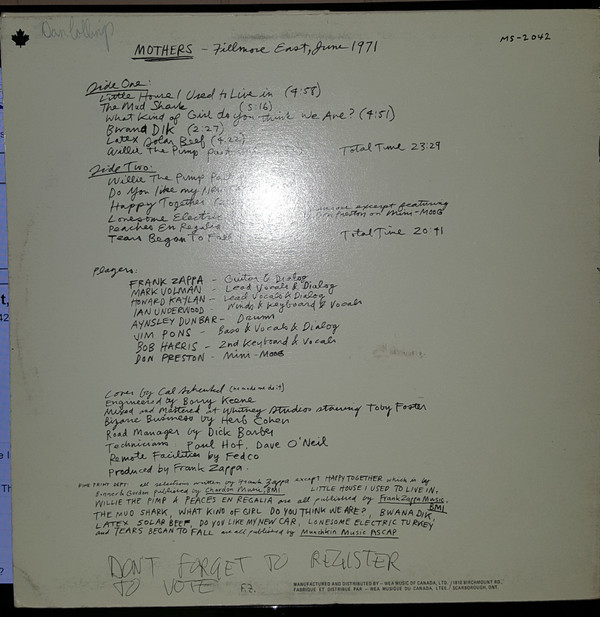 MOTHERS - Fillmore East, June 1971
MS-2042
Side One:
Little House I Used to Live in (4:58)
The Mud Shark (5:16)
What Kind of Girl do you think We Are? (4:51)
Bwana Dik (2:27)
Latex Solar Beef (4:22)
Willie The Pimp Part
Total Time 23:29
Side Two:
Willie The Pimp Part
Do You like my New
Happy Together
Lonesome Electric
excerpt featuring
Don Preston on Mini-MOOG
Peaches En Regalia
Tears Began To Fall
Total Time 20:41
Players:
FRANK ZAPPA - Guitar & Dialog
MARK VOLMAN - Lead Vocals & Dialog
HOWARD KAYLAN - Lead Vocals & Dialog
IAN UNDERWOOD - Winds & Keyboard & Vocals
AYNSLEY DUNBAR - Drums
JIM PONS - Bass & Vocals & Dialog
BOB HARRIS - 2nd Keyboard & Vocals
DON PRESTON - Mini-MOOG
Cover by Cal Schenkel (he made me do it)
Engineered by Barry Keene
Mixed and Mastered at Whitney Studios starring Toby Foster
Bizarre Business by Herb Cohen
Road Manager by Dick Barber
Technicians: Paul Hof, Dave O'Neil
Remote Facilities by Fedco
Produced by Frank Zappa.
FINE PRINT DEPT: all selections written by Frank Zappa except HAPPY TOGETHER which is by
Bonner & Gordon published by Chardon Music, BMI. LITTLE HOUSE I USED TO LIVE IN,
WILLIE THE PIMP & PEACES EN REGALIA are all published by Frank Zappa Music, BMI
THE MUD SHARK, WHAT KIND OF GIRL DO YOU THINK WE ARE?, BWANA DIK,
LATEX SOLAR BEEF, DO YOU LIKE MY NEW CAR, LONESOME ELECTRIC TURKEY
and TEARS BEGAN TO FALL are all published by Munchkin Music ASCAP
DON'T FORGET TO REGISTER
TO VOTE F.Z.
MANUFACTURED AND DISTRIBUTED BY - WEA MUSIC OF CANADA, LTD. / 1810 BIRCHMOUNT RD.,
FABRIQUE ET DISTRIBUE PAR - WEA MUSIQUE DU CANADA, LTEE. / SCARBOROUGH, ONT.